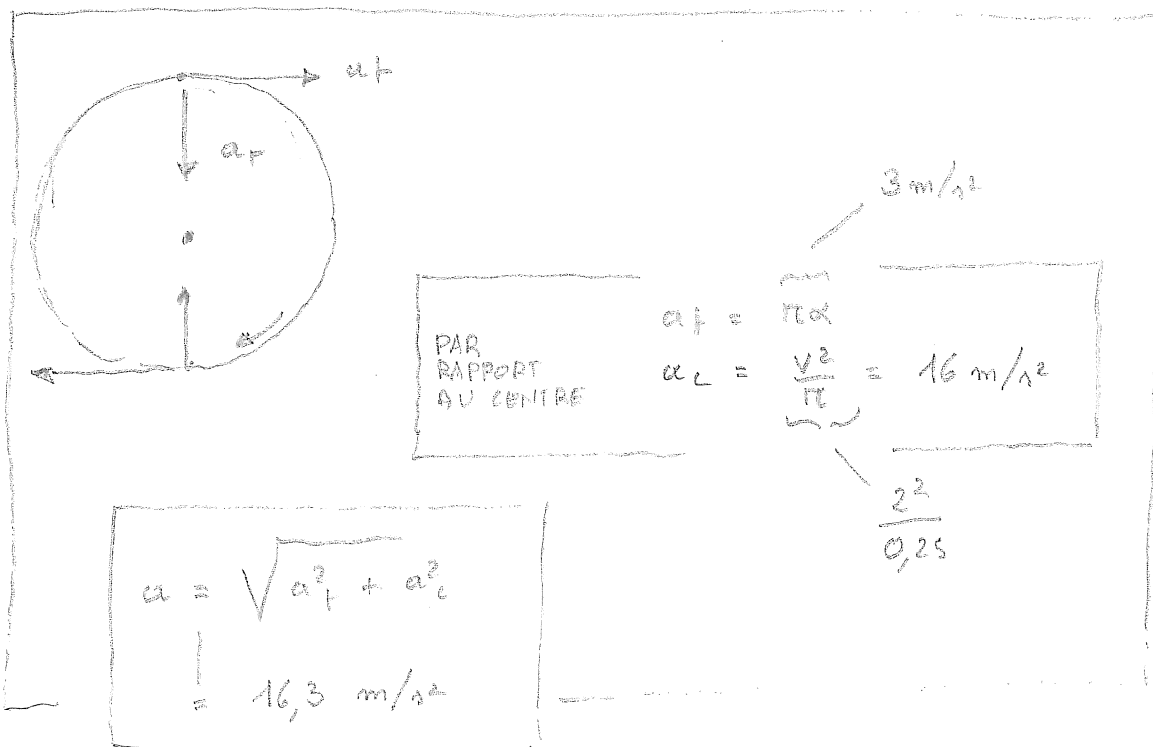 at
ar
3 m/s²
PAR
RAPPORT
AU CENTRE
at = rα
ac = v²/r = 16 m/s²
2²/0,25
a = √(a²t + a²c)
= 16,3 m/s²